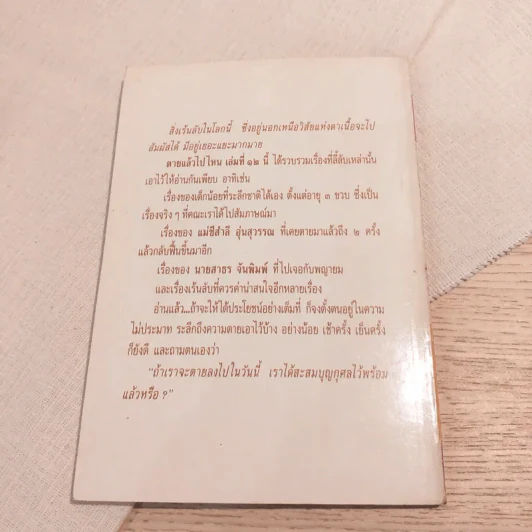 สิ่งเร้นลับในโลกนี้ ซึ่งอยู่นอกเหนือวิสัยแห่งตาเนื้อจะไป
สัมผัสได้ มีอยู่เยอะแยะมากมาย
ตายแล้วไปไหน เล่มที่ ๑๒ นี้ ได้รวบรวมเรื่องที่ลี้ลับเหล่านั้น
เอาไว้ให้อ่านกันเพียบ อาทิเช่น
เรื่องของเด็กน้อยที่ระลึกชาติได้เอง ตั้งแต่อายุ ๓ ขวบ ซึ่งเป็น
เรื่องจริง ๆ ที่คณะเราได้ไปสัมภาษณ์มา
เรื่องของ แม่ชีสำลี อุ่นสุวรรณ ที่เคยตายมาแล้วถึง ๒ ครั้ง
แล้วกลับฟื้นขึ้นมาอีก
เรื่องของ นายสาธร จันพิมพ์ ที่ไปเจอกับพญายม
และเรื่องเร้นลับที่ควรค่าน่าสนใจอีกหลายเรื่อง
อ่านแล้ว...ถ้าจะให้ได้ประโยชน์อย่างเต็มที่ ก็จงตั้งตนอยู่ในความ
ไม่ประมาท ระลึกถึงความตายเอาไว้บ้าง อย่างน้อย เช้าครั้ง เย็นครั้ง
ก็ยังดี และถามตนเองว่า
"ถ้าเราจะตายลงไปในวันนี้ เราได้สะสมบุญกุศลไว้พร้อม
แล้วหรือ ?"